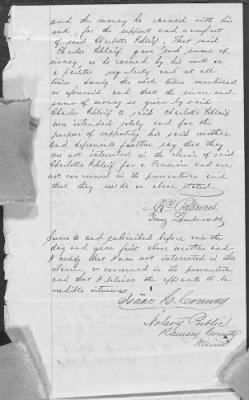 and the money he earned with his
work, for the support and comfort
of said Charlotte Schleif, That said
Charles Schleif gave said sums of
money, as he earned by his work as
a painter regularly and at all
times during the whole time mentioned
as aforesaid and that the sum and
sums of money so given by said
Charles Schleif to said Charlotte Schleif
was intended solely and for the
purpose of supporting his said mother
and deponents further say that they
are not interested in the claim of said
Charlotte Schleif for a Pension and are
not concerned in the prosecution and
that they reside as above stated
Sworn to and subscribed before me the
day and year first above written and
I certify that I am not interested in this
claim, or concerned in the prosecution
and that I believe the affiants to be
credible witnesses.
Isaac L. Conway
Notary Public
Ramsey County
Minn